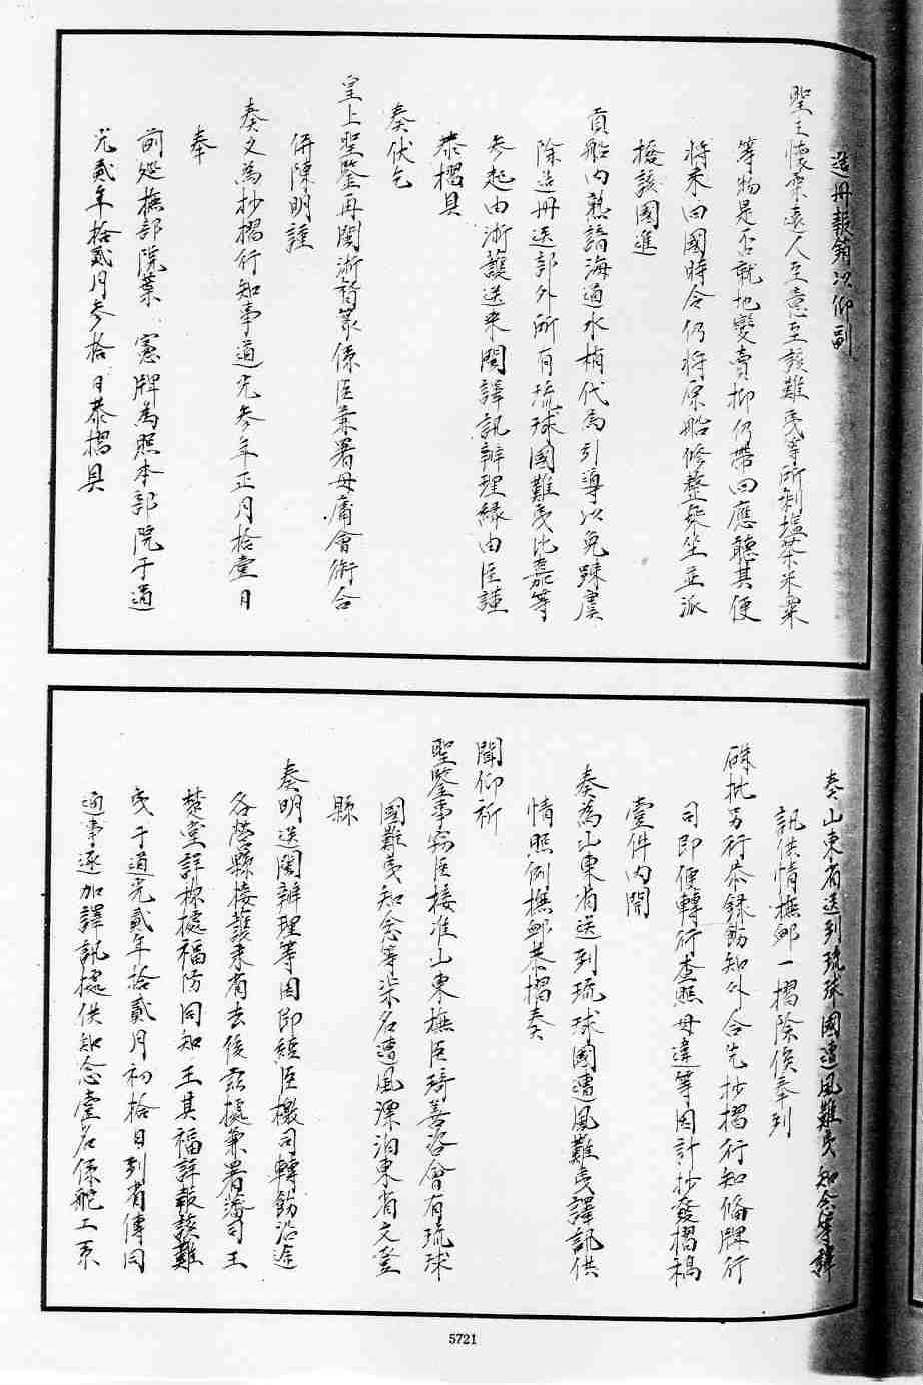 造冊報銷以仰副
聖主懷柔遠人至意至該難夷等所剩塩茶米粟
等物是否就地變賣抑仍帶回應聽其便
將來回國時令仍將原船修整乘坐並派
撥該國進
貢船内熟諳海道水梢代為引導以免踈虞
除造冊送部外所有琉球國難夷比嘉等
參起由浙護送來閩譯訊辦理緣由臣謹
恭摺具
奏伏乞
皇上聖鑒再閩浙督篆係臣兼署毋庸會銜合
併陳明謹
奏文為抄摺行知事道光參年正月拾壹日
奉
前巡撫部院葉 憲牌為照本部院于道
光貳年拾貳月參拾日恭摺具
奏山東省送到琉球國遭風難夷知念等譯
訊供情撫卹一摺除俟奉到
硃批另行恭録飭知外合先抄摺行知備牌行
司即便轉行查照毋違等因計抄發摺稿
壹件内開
奏為山東省送到琉球國遭風難夷譯訊供
情照例撫卹恭摺奏
聞仰祈
聖鑒事竊臣接准山東撫臣琦善咨會有琉球
國難夷知念等柒名遭風漂泊東省文登
縣
奏明送閩辦理等因即經臣檄司轉飭沿途
各營縣接護來省去後茲據兼署藩司王
楚堂詳稱據福防同知王其福詳報該難
夷于道光貳年拾貳月初拾日到省傳同
通事逐加譯訊據供知念壹名係舵工系
5721